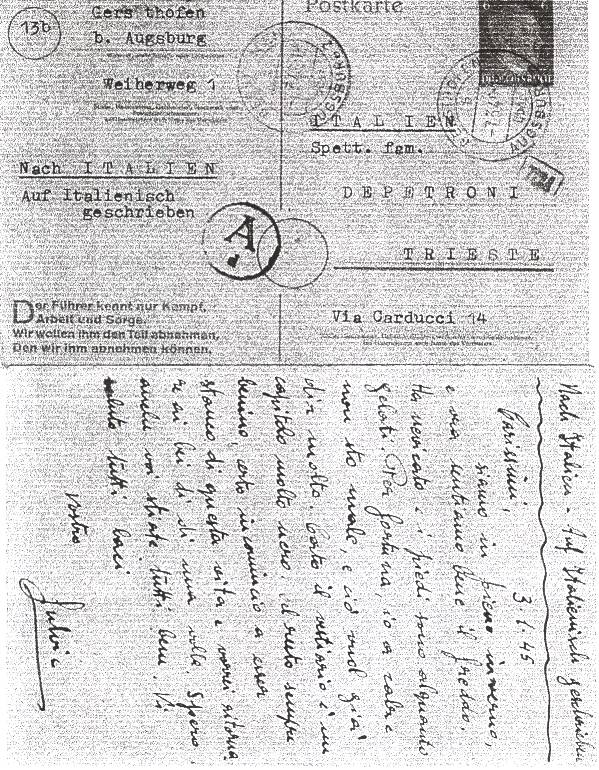 13b
Gersthofen
b. Augsburg
Weiherweg 1
Postkarte
Nach ITALIEN
Auf Italienisch
geschrieben
ITALIEN
Spett. fam.
DEPETRONI
TRIESTE
Via Carducci 14
A
Der Führer kennt nur Kampf,
Arbeit und Sorge.
Wir wollen ihm den Teil abnehmen,
Den wir ihm abnehmen können.
Nach Italien - Auf Italienisch geschrieben
3.1.45
Carissimi,
siamo in pieno inverno,
e ora sentiamo bene il freddo.
Ha nevicato e i piedi sono alquanto
gelati. Per fortuna, io a calze
non sto male, e ciò vuol già
dir molto. Certo il vestiario è un
capitolo molto nero. Il resto sempre
benino, certo incomincio a esser
stanco di questa vita e vorrei ritorna
una volta. Spero,
anche voi stiate tutti bene. Vi
saluto tutti baci
vostro